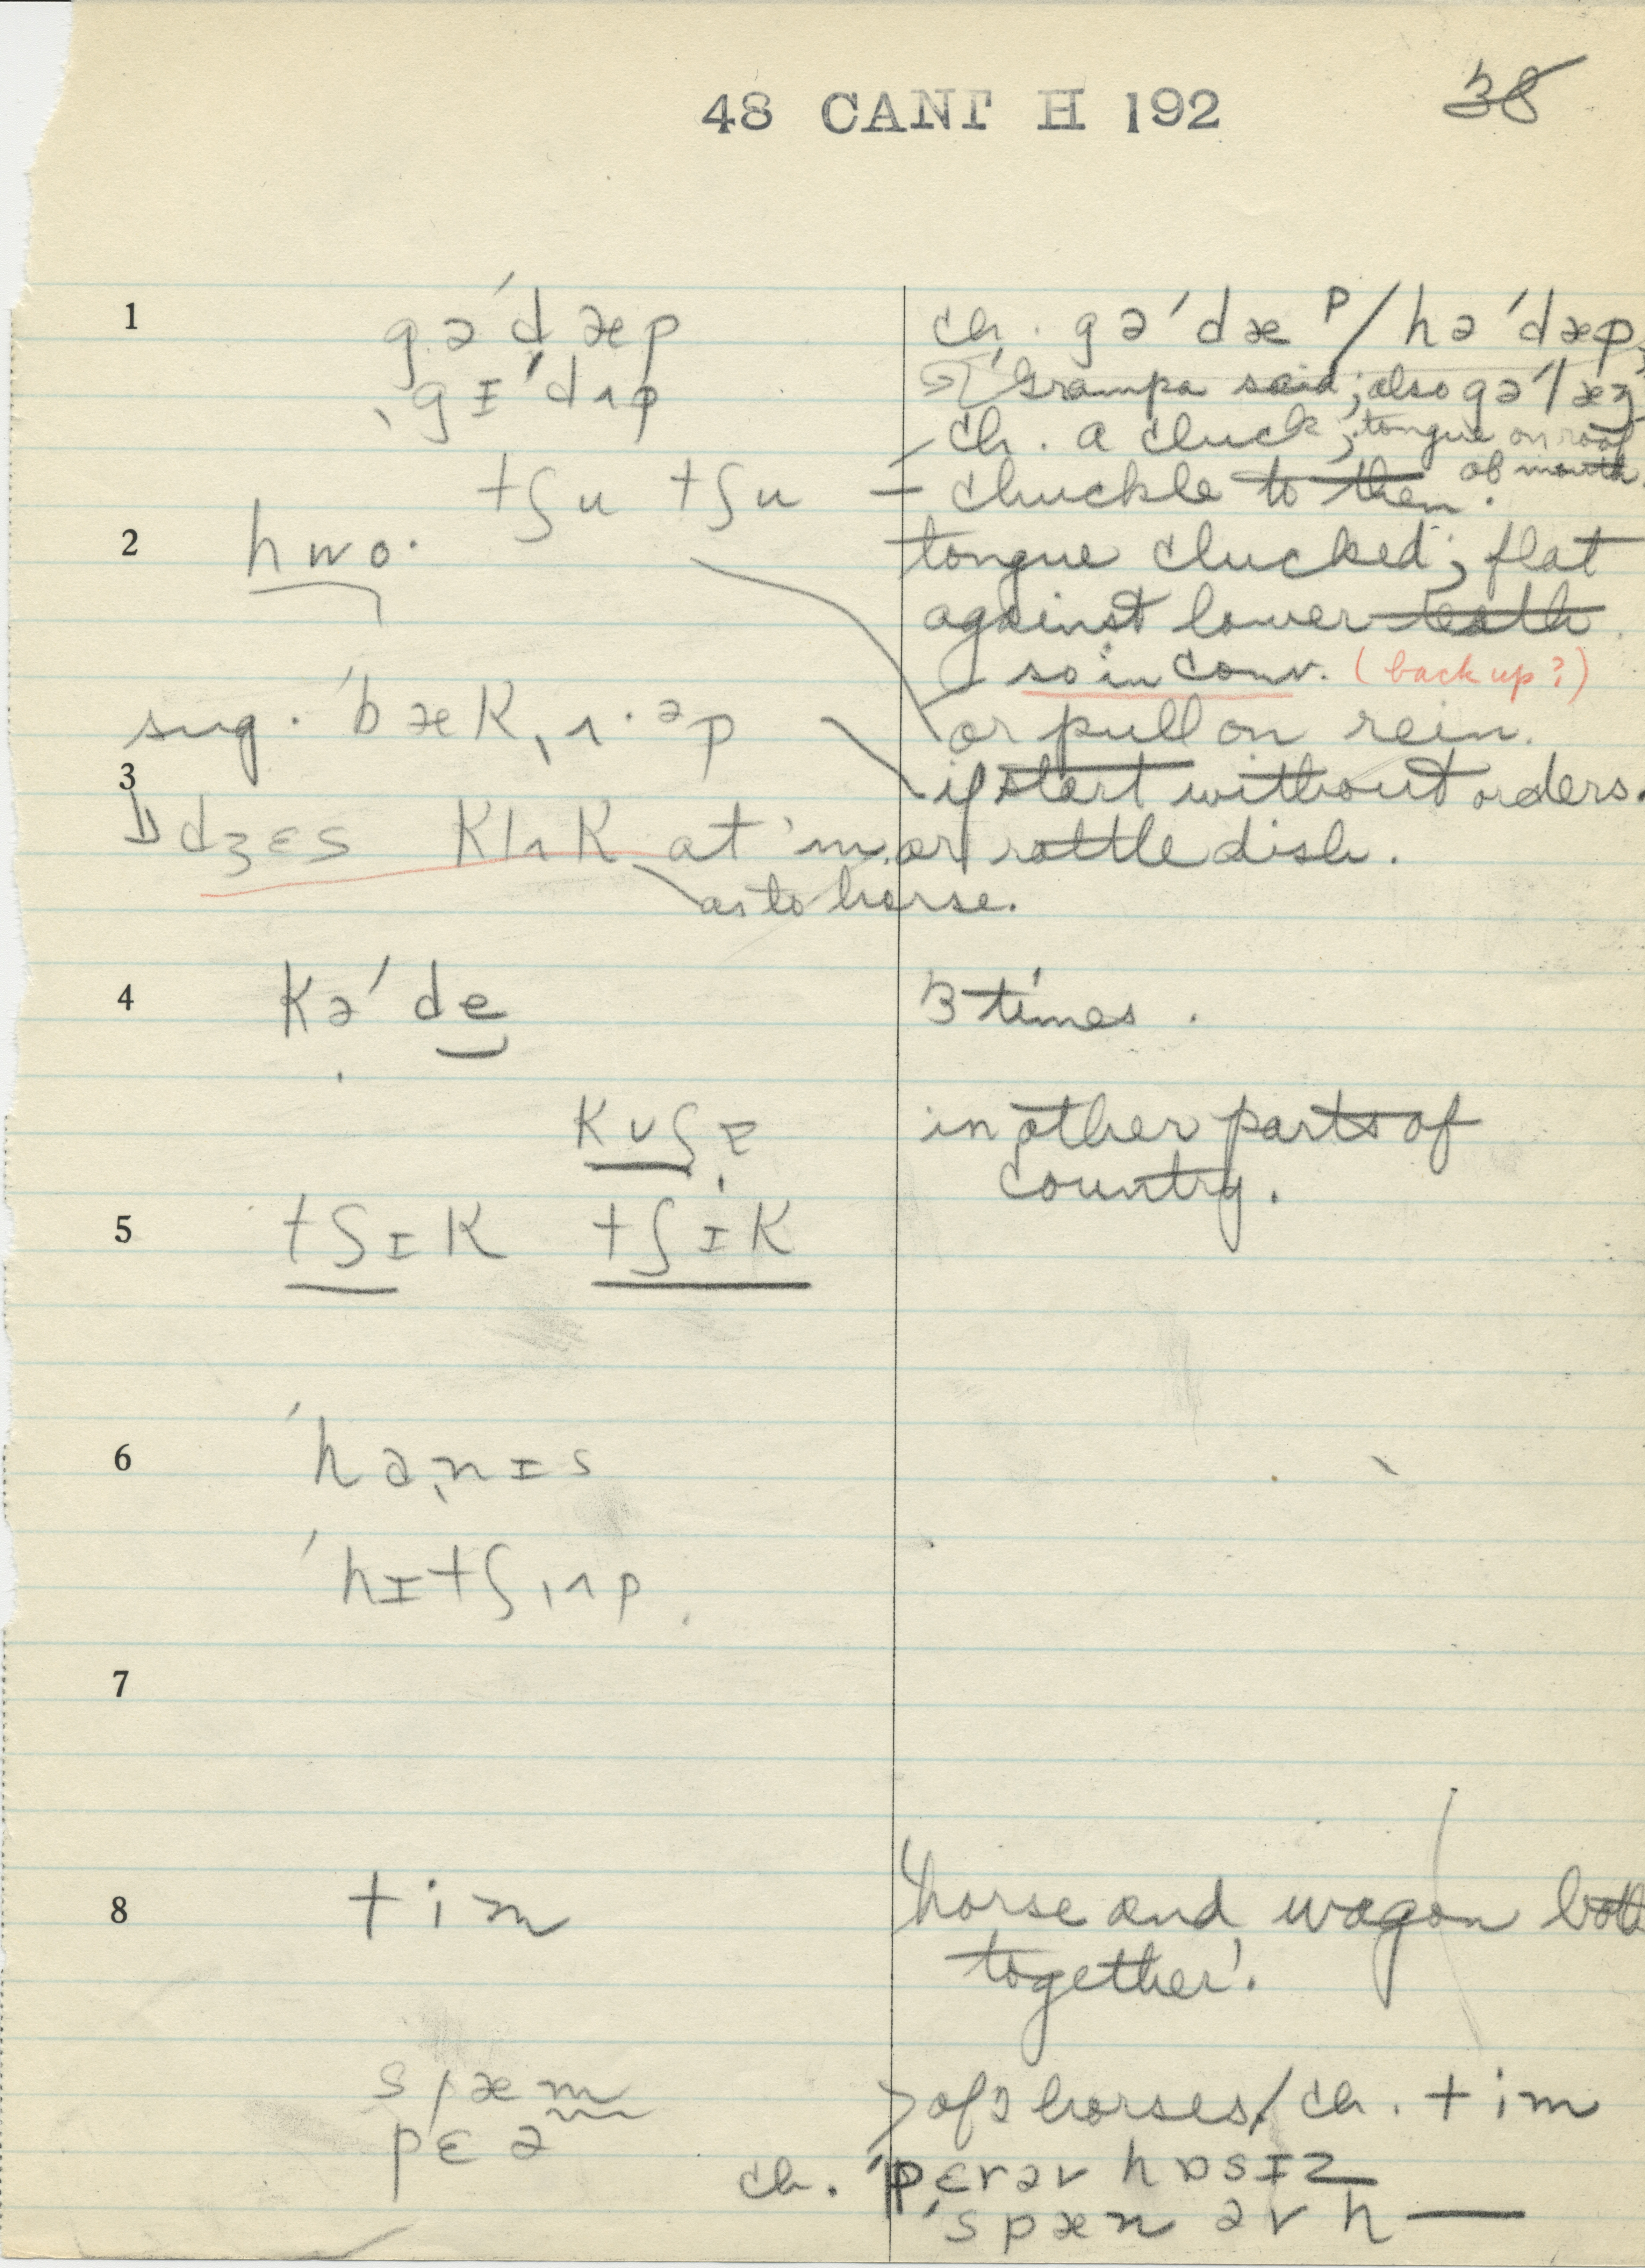 48 CANT H 192 38
1 gə'dæp ch. gə'dæp/hə'dæp,
ˌgɪ'dʌp Grampa said; also gə'læŋ
ch. a cluck; tongue on roof of mouth.
tʃu tʃu – chuckle to them.
2 hwo· tongue clucked; flat
against lower teeth.
so in conv. (back up?)
sug. 'bæk,ʌ·əp or pull on rein.
3 if start without orders.
dʒɛs klʌk at 'm. or rattle dish.
as to horse.
4 kə'de 3 times.
kʊʃɪ in other parts of
country.
5 tʃɪk tʃɪk
6 'haˌnɪs
'hɪtʃˌʌp
7
8 tim 'horse and wagon both
together'.
spæn > of 2 horses/ch. tim
pɛə
ch. 'pɛrəv hɒsɪz
'spæn əv h—